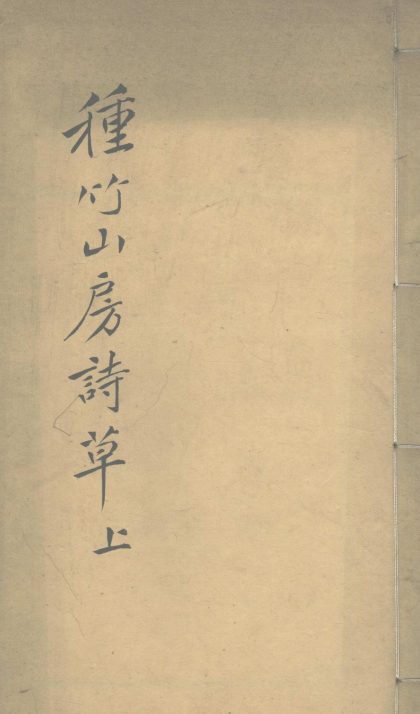 種竹山房詩草上